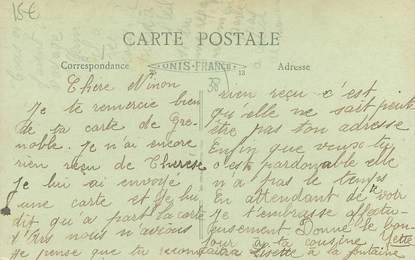 15€
CARTE POSTALE
Correspondance
UNIS-FRANCE
13
Adresse
Chère Ninon
Je te remercie bien
de ta carte de Gre
noble. Je n'ai encore
rien reçu de Thérèse
Je lui ai envoyé
une carte et je lui
dit qu'a part la carte
d'Ars nous n'avions
Je pense que tu reconnaitra
rien reçu c'est
qu'elle ne sait peut
être pas ton adresse
Enfin que veux-tu
c'est pardonable elle
n'a pas le temps
En attendant de voir
Je t'embrasse affectu
eusement Donne le bon
jour a ta cousine Yette
Lisette a la fontaine